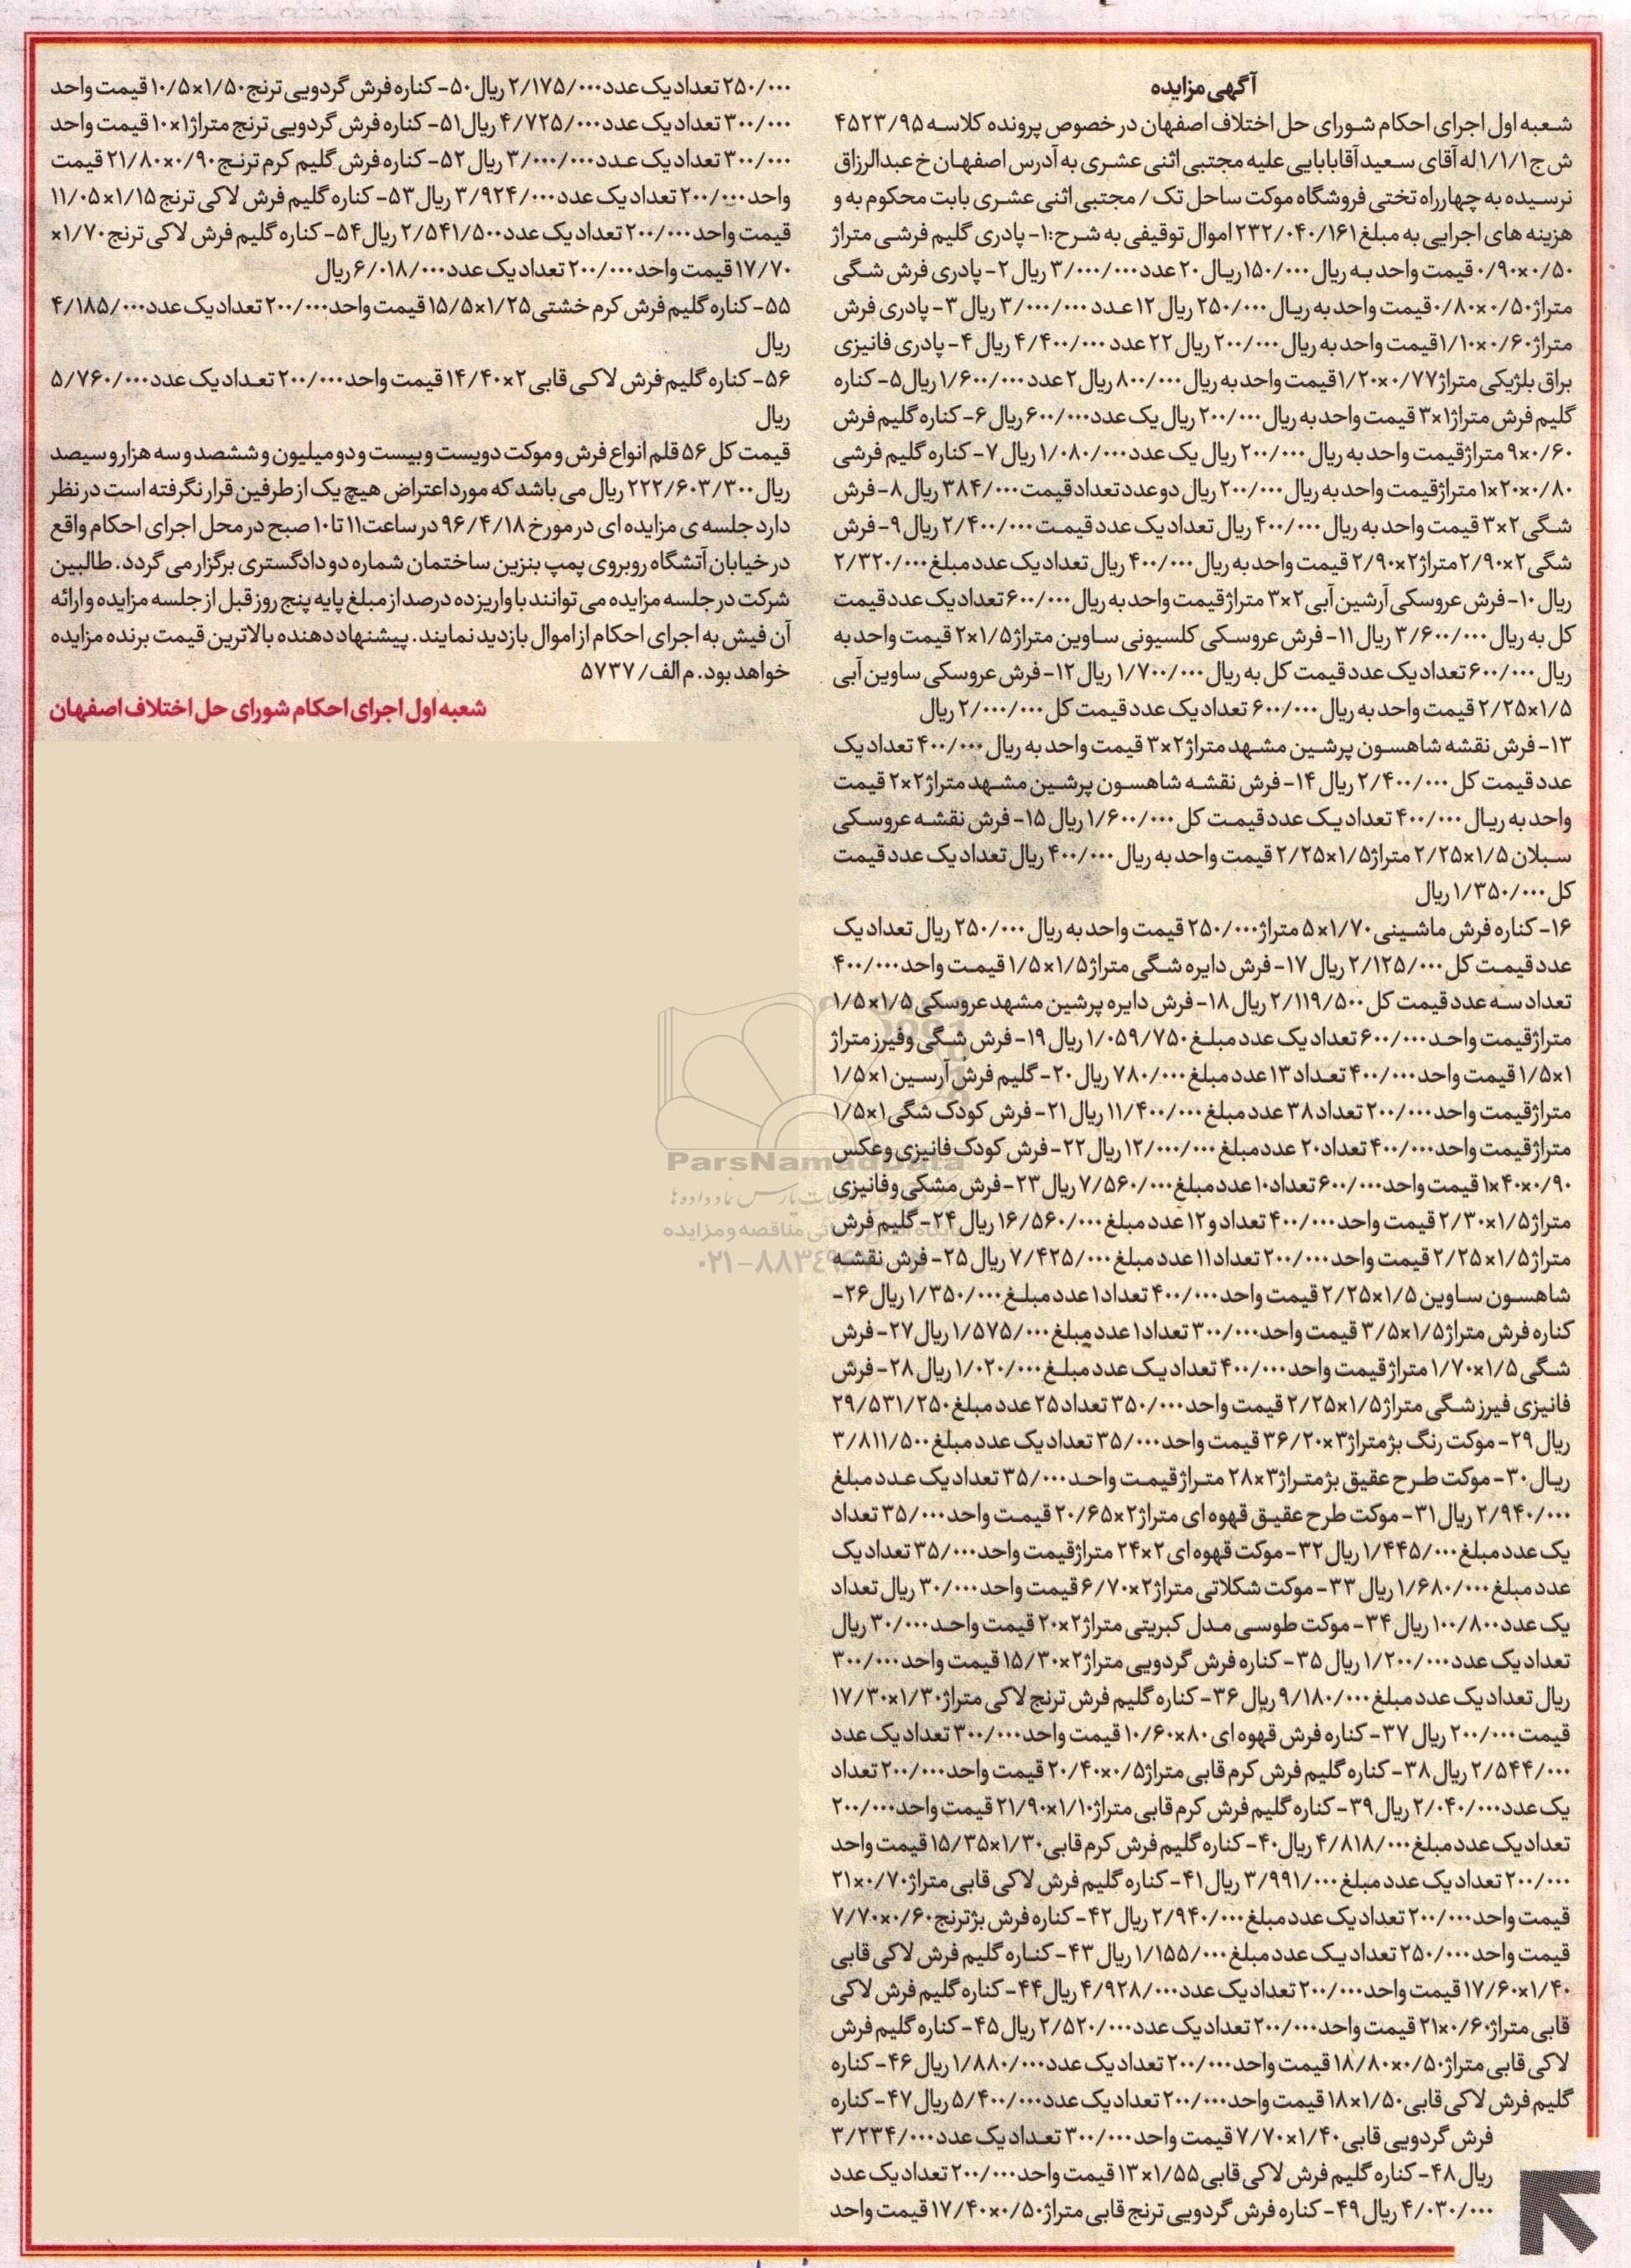 آگهی مزایده
شعبه اول اجرای احکام شورای حل اختلاف اصفهان در خصوص پرونده کلاسه ۴۵۲۳/۹۵
ش ج۱/۱/۱ له آقای سعید آقابابایی علیه مجتبی اثنی عشری به آدرس اصفهان خ عبدالرزاق
نرسیده به چهارراه تختی فروشگاه موکت ساحل تک / مجتبی اثنی عشری بابت محکوم به و
هزینه های اجرایی به مبلغ۲۳۲/۰۴۰/۱۶۱ اموال توقیفی به شرح:۱- پادری گلیم فرشی متراژ
۰/۹۰×۰/۵۰ قیمت واحد به ریال ۱۵۰/۰۰۰ریال ۲۰ عدد۳/۰۰۰/۰۰۰ ریال ۲- پادری فرش شگی
متراژ۰/۸۰×۰/۵۰ قیمت واحد به ریال ۲۵۰/۰۰۰ ریال ۱۲ عدد ۳/۰۰۰/۰۰۰ ریال ۳- پادری فرش
متراژ۱/۱۰×۰/۶۰ قیمت واحد به ریال ۲۰۰/۰۰۰ ریال ۲۲ عدد ۴/۴۰۰/۰۰۰ ریال ۴- پادری فانیزی
براق بلژیکی متراژ۱/۲۰×۰/۷۷ قیمت واحد به ریال ۸۰۰/۰۰۰ ریال ۲ عدد ۱/۶۰۰/۰۰۰ ریال۵- کناره
گلیم فرش متراژ۳×۱ قیمت واحد به ریال ۲۰۰/۰۰۰ ریال یک عدد۶۰۰/۰۰۰ ریال ۶- کناره گلیم فرش
۹×۰/۶۰ متراژقیمت واحد به ریال ۲۰۰/۰۰۰ ریال یک عدد ۱/۰۸۰/۰۰۰ ریال ۷- کناره گلیم فرشی
۱×۲۰×۰/۸۰ متراژقیمت واحد به ریال ۲۰۰/۰۰۰ ریال دو عدد تعداد قیمت۳۸۴/۰۰۰ ریال ۸- فرش
شگی ۲×۳ قیمت واحد به ریال ۴۰۰/۰۰۰ ریال تعداد یک عدد قیمت ۲/۴۰۰/۰۰۰ ریال ۹- فرش
شگی ۲×۲/۹۰متراژ۲×۲/۹۰ قیمت واحد به ریال ۴۰۰/۰۰۰ ریال تعداد یک عدد مبلغ ۲/۳۲۰/۰۰۰
ریال ۱۰- فرش عروسکی آرشین آبی ۲×۳ متراژقیمت واحد به ریال ۶۰۰/۰۰۰ تعداد یک عدد قیمت
کل به ریال ۳/۶۰۰/۰۰۰ ریال ۱۱- فرش عروسکی کلسیونی ساوین متراژ۱/۵×۲ قیمت واحد به
ریال ۶۰۰/۰۰۰ تعداد یک عدد قیمت کل به ریال ۱/۷۰۰/۰۰۰ ریال ۱۲- فرش عروسکی ساوین آبی
۱/۵×۲/۲۵ قیمت واحد به ریال ۶۰۰/۰۰۰ تعداد یک عدد قیمت کل ۲/۰۰۰/۰۰۰ ریال
۱۳- فرش نقشه شاهسون پرشین مشهد متراژ۲×۳ قیمت واحد به ریال ۴۰۰/۰۰۰ تعداد یک
عدد قیمت کل ۲/۴۰۰/۰۰۰ ریال ۱۴- فرش نقشه شاهسون پرشین مشهد متراژ۲×۲ قیمت
واحد به ریال ۴۰۰/۰۰۰ تعداد یک عدد قیمت کل ۱/۶۰۰/۰۰۰ ریال ۱۵- فرش نقشه عروسکی
سبلان ۱/۵×۲/۲۵ متراژ۱/۵×۲/۲۵ قیمت واحد به ریال ۴۰۰/۰۰۰ ریال تعداد یک عدد قیمت
کل ۱/۳۵۰/۰۰۰ ریال
۱۶- کناره فرش ماشینی ۱/۷۰×۵ متراژ۲۵۰/۰۰۰ قیمت واحد به ریال ۲۵۰/۰۰۰ ریال تعداد یک
عدد قیمت کل ۲/۱۲۵/۰۰۰ ریال ۱۷- فرش دایره شگی متراژ۱/۵×۱/۵ قیمت واحد ۴۰۰/۰۰۰
تعداد سه عدد قیمت کل ۲/۱۱۹/۵۰۰ ریال ۱۸- فرش دایره پرشین مشهد عروسکی ۱/۵×۱/۵
متراژقیمت واحد ۶۰۰/۰۰۰ تعداد یک عدد مبلغ ۱/۰۵۹/۷۵۰ ریال ۱۹- فرش شگی وفیرز متراژ
۱×۱/۵ قیمت واحد۴۰۰/۰۰۰ تعداد ۱۳ عدد مبلغ ۷۸۰/۰۰۰ ریال ۲۰- گلیم فرش آرسین ۱×۱/۵
متراژقیمت واحد۲۰۰/۰۰۰ تعداد ۳۸ عدد مبلغ ۱۱/۴۰۰/۰۰۰ ریال ۲۱- فرش کودک شگی ۱×۱/۵
متراژقیمت واحد۴۰۰/۰۰۰ تعداد۲۰ عدد مبلغ ۱۲/۰۰۰/۰۰۰ ریال ۲۲- فرش کودک فانیزی وعکس
۱×۴۰×۰/۹۰ قیمت واحد۶۰۰/۰۰۰ تعداد۱۰ عدد مبلغ ۷/۵۶۰/۰۰۰ ریال ۲۳- فرش مشکی وفانیزی
متراژ۱/۵×۲/۳۰ قیمت واحد۴۰۰/۰۰۰ تعداد و۱۲ عدد مبلغ ۱۶/۵۶۰/۰۰۰ ریال ۲۴- گلیم فرش
متراژ۱/۵×۲/۲۵ قیمت واحد۲۰۰/۰۰۰ تعداد۱۱ عدد مبلغ ۷/۴۲۵/۰۰۰ ریال ۲۵- فرش نقشه
شاهسون ساوین ۱/۵×۲/۲۵ قیمت واحد ۴۰۰/۰۰۰ تعداد۱ عدد مبلغ ۱/۳۵۰/۰۰۰ ریال ۲۶-
کناره فرش متراژ۱/۵×۳/۵ قیمت واحد۳۰۰/۰۰۰ تعداد۱ عدد مبلغ ۱/۵۷۵/۰۰۰ ریال ۲۷- فرش
شگی ۱/۵×۱/۷۰ متراژقیمت واحد ۴۰۰/۰۰۰ تعداد یک عدد مبلغ ۱/۰۲۰/۰۰۰ ریال ۲۸- فرش
فانیزی فیرزشگی متراژ۱/۵×۲/۲۵ قیمت واحد ۳۵۰/۰۰۰ تعداد ۲۵ عدد مبلغ ۲۹/۵۳۱/۲۵۰
ریال ۲۹- موکت رنگ بژمتراژ۳×۳۶/۲۰ قیمت واحد ۳۵/۰۰۰ تعداد یک عدد مبلغ ۳/۸۱۱/۵۰۰
ریال ۳۰- موکت طرح عقیق بژمتراژ۳×۲۸ متراژقیمت واحد ۳۵/۰۰۰ تعداد یک عدد مبلغ
۲/۹۴۰/۰۰۰ ریال ۳۱- موکت طرح عقیق قهوه ای متراژ۲×۲۰/۶۵ قیمت واحد ۳۵/۰۰۰ تعداد
یک عدد مبلغ ۱/۴۴۵/۰۰۰ ریال ۳۲- موکت قهوه ای ۲×۲۴ متراژقیمت واحد ۳۵/۰۰۰ تعداد یک
عدد مبلغ ۱/۶۸۰/۰۰۰ ریال ۳۳- موکت شکلاتی متراژ۲×۶/۷۰ قیمت واحد ۳۰/۰۰۰ ریال تعداد
یک عدد ۱۰۰/۸۰۰ ریال ۳۴- موکت طوسی مدل کبریتی متراژ۲×۲۰ قیمت واحد ۳۰/۰۰۰ ریال
تعداد یک عدد ۱/۲۰۰/۰۰۰ ریال ۳۵- کناره فرش گردویی متراژ۲×۱۵/۳۰ قیمت واحد ۳۰۰/۰۰۰
ریال تعداد یک عدد مبلغ ۹/۱۸۰/۰۰۰ ریال ۳۶- کناره گلیم فرش ترنج لاکی متراژ۱/۳۰×۱۷/۳۰
قیمت ۲۰۰/۰۰۰ ریال ۳۷- کناره فرش قهوه ای ۸۰×۱۰/۶۰ قیمت واحد ۳۰۰/۰۰۰ تعداد یک عدد
۲/۵۴۴/۰۰۰ ریال ۳۸- کناره گلیم فرش کرم قابی متراژ۰/۵×۲۰/۴۰ قیمت واحد ۲۰۰/۰۰۰ تعداد
یک عدد ۲/۰۴۰/۰۰۰ ریال ۳۹- کناره گلیم فرش کرم قابی متراژ۱/۱۰×۲۱/۹۰ قیمت واحد ۲۰۰/۰۰۰
تعداد یک عدد مبلغ ۴/۸۱۸/۰۰۰ ریال ۴۰- کناره گلیم فرش کرم قابی ۱/۳۰×۱۵/۳۵ قیمت واحد
۲۰۰/۰۰۰ تعداد یک عدد مبلغ ۳/۹۹۱/۰۰۰ ریال ۴۱- کناره گلیم فرش لاکی قابی متراژ۰/۷۰×۲۱
قیمت واحد ۲۰۰/۰۰۰ تعداد یک عدد مبلغ ۲/۹۴۰/۰۰۰ ریال ۴۲- کناره فرش بژترنج ۰/۶۰×۷/۷۰
قیمت واحد ۲۵۰/۰۰۰ تعداد یک عدد مبلغ ۱/۱۵۵/۰۰۰ ریال ۴۳- کناره گلیم فرش لاکی قابی
۱/۴۰×۱۷/۶۰ قیمت واحد ۲۰۰/۰۰۰ تعداد یک عدد ۴/۹۲۸/۰۰۰ ریال ۴۴- کناره گلیم فرش لاکی
قابی متراژ۰/۶۰×۲۱ قیمت واحد ۲۰۰/۰۰۰ تعداد یک عدد ۲/۵۲۰/۰۰۰ ریال ۴۵- کناره گلیم فرش
لاکی قابی متراژ۰/۵۰×۱۸/۸۰ قیمت واحد ۲۰۰/۰۰۰ تعداد یک عدد ۱/۸۸۰/۰۰۰ ریال ۴۶- کناره
گلیم فرش لاکی قابی ۱/۵۰×۱۸ قیمت واحد ۲۰۰/۰۰۰ تعداد یک عدد ۵/۴۰۰/۰۰۰ ریال ۴۷- کناره
فرش گردویی قابی ۱/۴۰×۷/۷۰ قیمت واحد ۳۰۰/۰۰۰ تعداد یک عدد ۳/۲۳۴/۰۰۰
ریال ۴۸- کناره گلیم فرش لاکی قابی ۱/۵۵×۱۳ قیمت واحد ۲۰۰/۰۰۰ تعداد یک عدد
۴/۰۳۰/۰۰۰ ریال ۴۹- کناره فرش گردویی ترنج قابی متراژ۰/۵۰×۱۷/۴۰ قیمت واحد
۲۵۰/۰۰۰ تعداد یک عدد ۲/۱۷۵/۰۰۰ ریال ۵۰- کناره فرش گردویی ترنج ۱/۵۰×۱۰/۵ قیمت واحد
۳۰۰/۰۰۰ تعداد یک عدد ۴/۷۲۵/۰۰۰ ریال ۵۱- کناره فرش گردویی ترنج متراژ۱×۱۰ قیمت واحد
۳۰۰/۰۰۰ تعداد یک عدد ۳/۰۰۰/۰۰۰ ریال ۵۲- کناره فرش گلیم کرم ترنج ۰/۹۰×۲۱/۸۰ قیمت
واحد ۲۰۰/۰۰۰ تعداد یک عدد ۳/۹۲۴/۰۰۰ ریال ۵۳- کناره گلیم فرش لاکی ترنج ۱/۱۵×۱۱/۰۵
قیمت واحد ۲۰۰/۰۰۰ تعداد یک عدد ۲/۵۴۱/۵۰۰ ریال ۵۴- کناره گلیم فرش لاکی ترنج ۱/۷۰×
۱۷/۷۰ قیمت واحد ۲۰۰/۰۰۰ تعداد یک عدد ۶/۰۱۸/۰۰۰ ریال
۵۵- کناره گلیم فرش کرم خشتی ۱/۲۵×۱۵/۵ قیمت واحد ۲۰۰/۰۰۰ تعداد یک عدد ۴/۱۸۵/۰۰۰
ریال
۵۶- کناره گلیم فرش لاکی قابی ۲×۱۴/۴۰ قیمت واحد ۲۰۰/۰۰۰ تعداد یک عدد ۵/۷۶۰/۰۰۰
ریال
قیمت کل ۵۶ قلم انواع فرش و موکت دویست و بیست و دو میلیون و ششصد و سه هزار و سیصد
ریال ۲۲۲/۶۰۳/۳۰۰ ریال می باشد که مورد اعتراض هیچ یک از طرفین قرار نگرفته است در نظر
دارد جلسه ی مزایده ای در مورخ ۹۶/۴/۱۸ در ساعت ۱۱ تا ۱۰ صبح در محل اجرای احکام واقع
در خیابان آتشگاه روبروی پمپ بنزین ساختمان شماره دو دادگستری برگزار می گردد. طالبین
شرکت در جلسه مزایده می توانند با واریز ده درصد از مبلغ پایه پنج روز قبل از جلسه مزایده و ارائه
آن فیش به اجرای احکام از اموال بازدید نمایند. پیشنهاد دهنده بالاترین قیمت برنده مزایده
خواهد بود. م الف/ ۵۷۳۷
شعبه اول اجرای احکام شورای حل اختلاف اصفهان
ParsNamadData